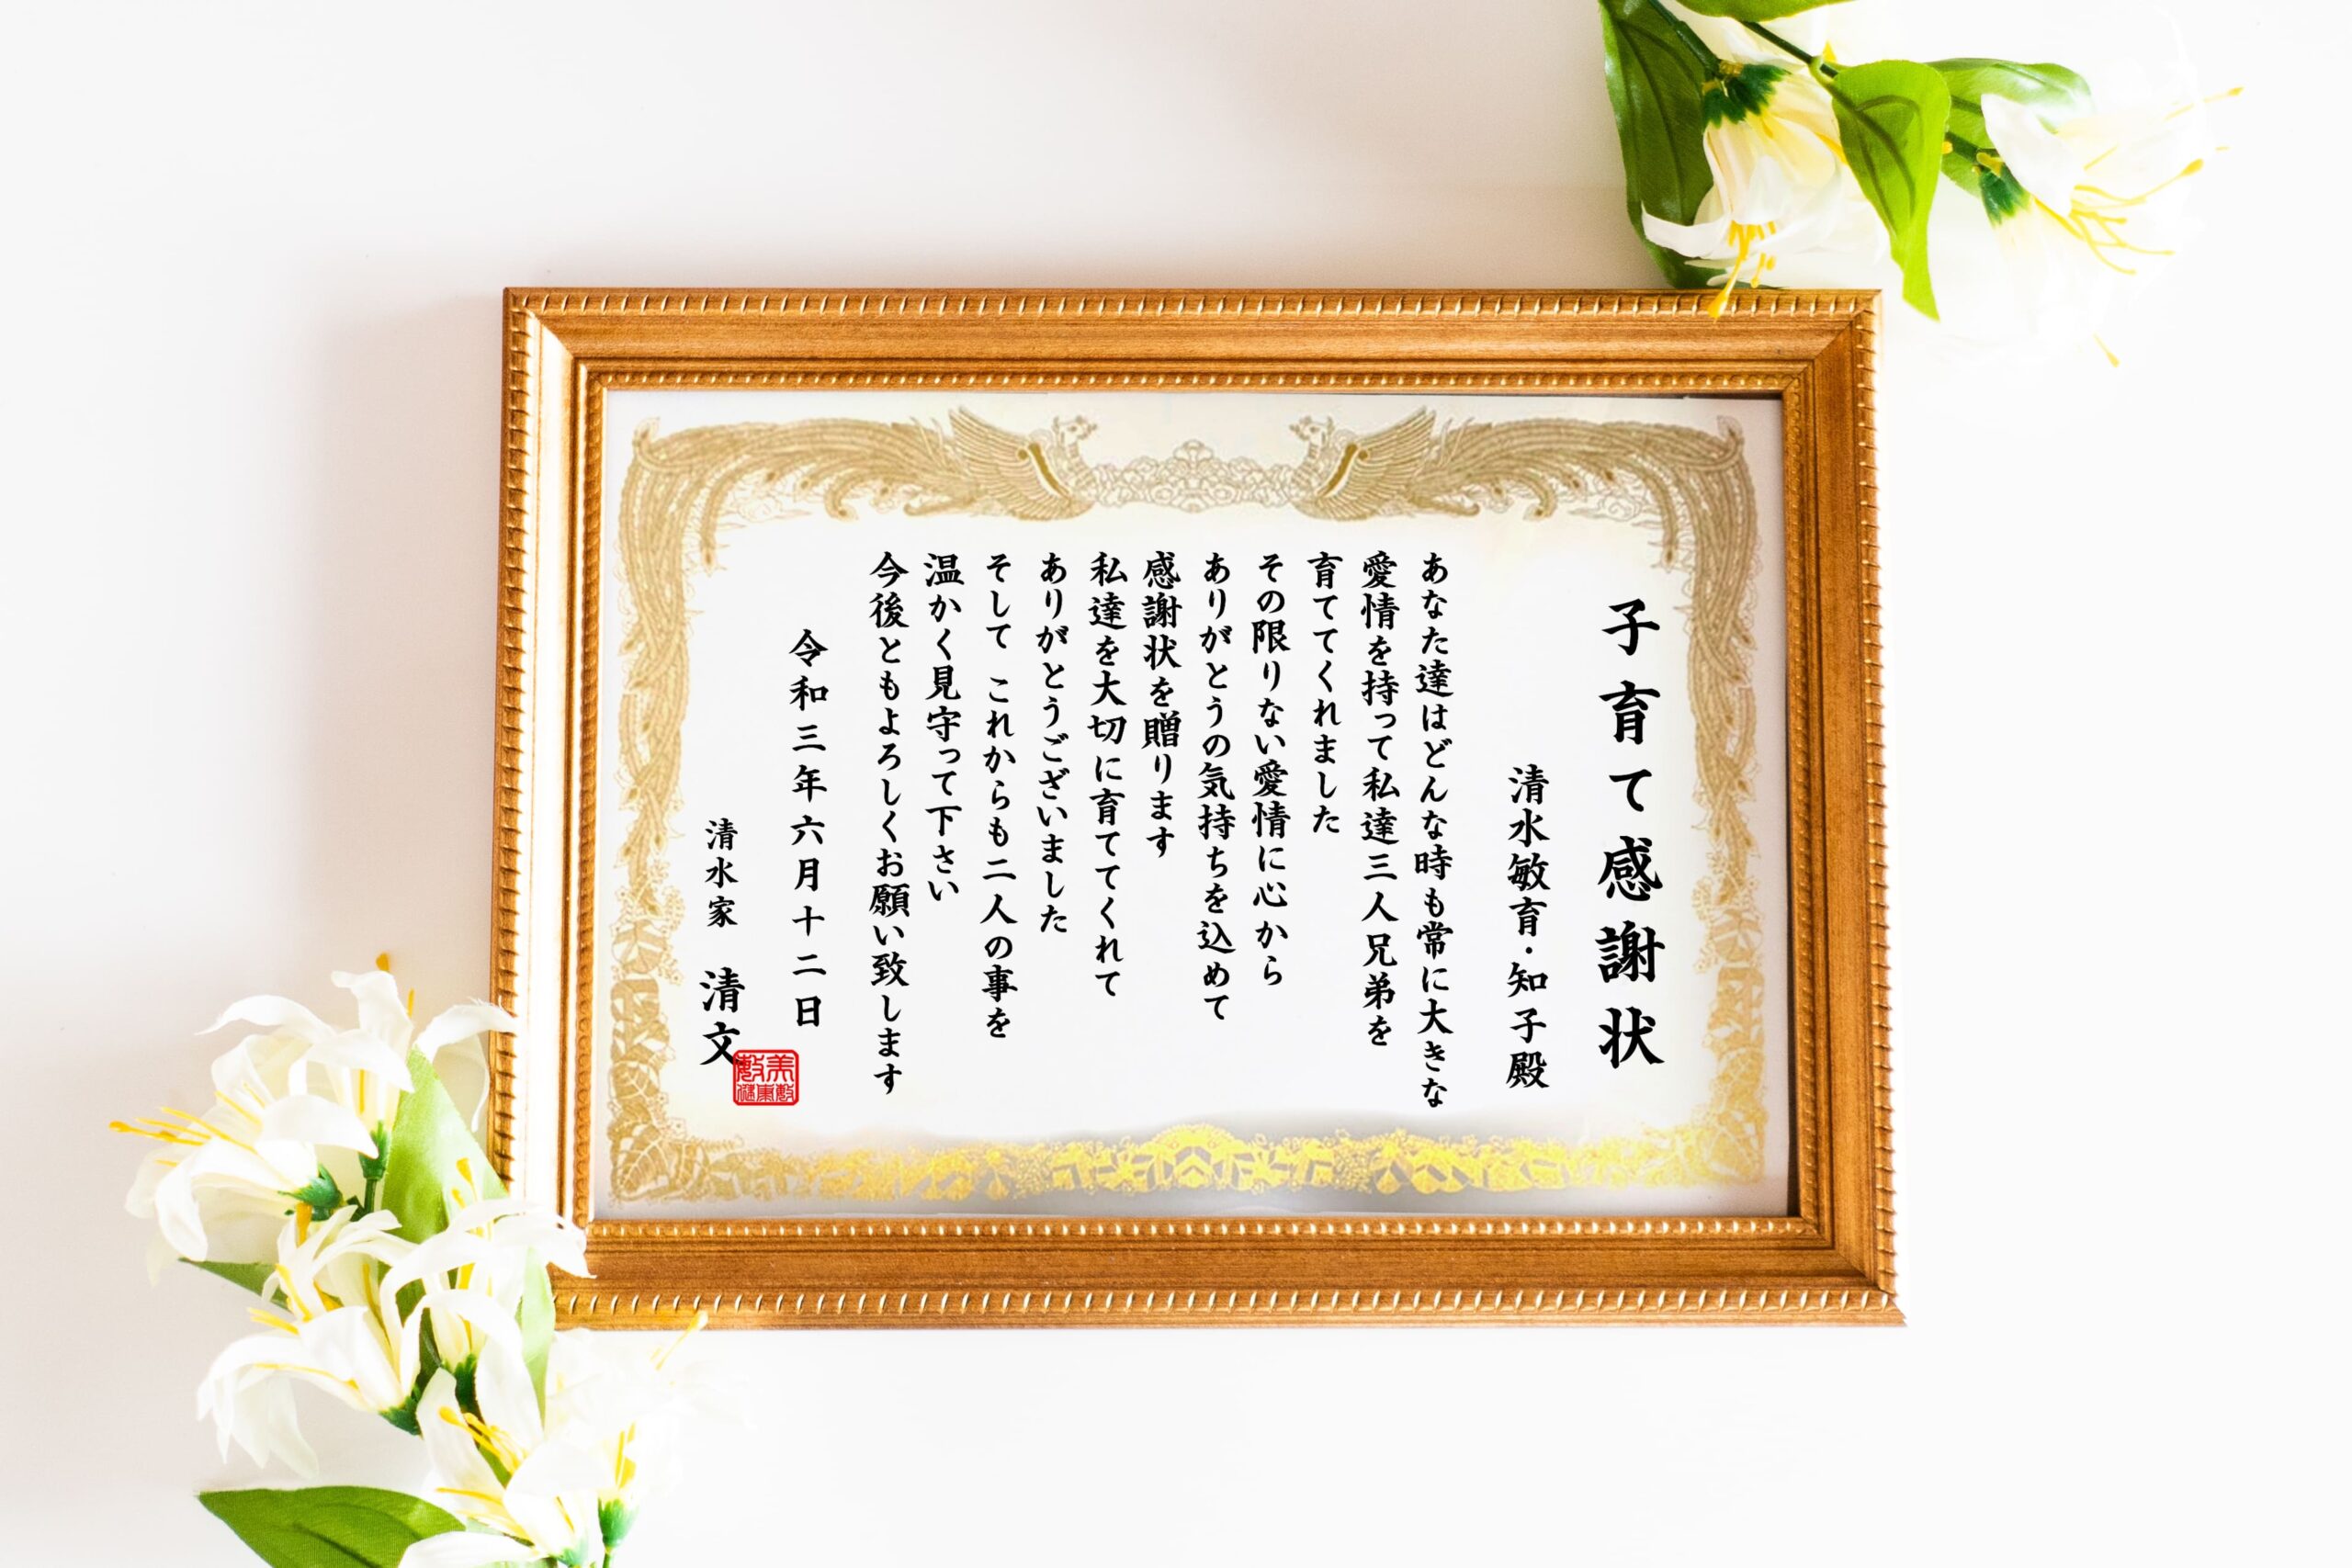 子育て感謝状
清水敏育・知子殿
あなた達はどんな時も常に大きな
愛情を持って私達三人兄弟を
育ててくれました
その限りない愛情に心から
ありがとうの気持ちを込めて
感謝状を贈ります
私達を大切に育ててくれて
ありがとうございました
そして これからも二人の事を
温かく見守って下さい
今後ともよろしくお願い致します
令和三年六月十二日
清水家 清文